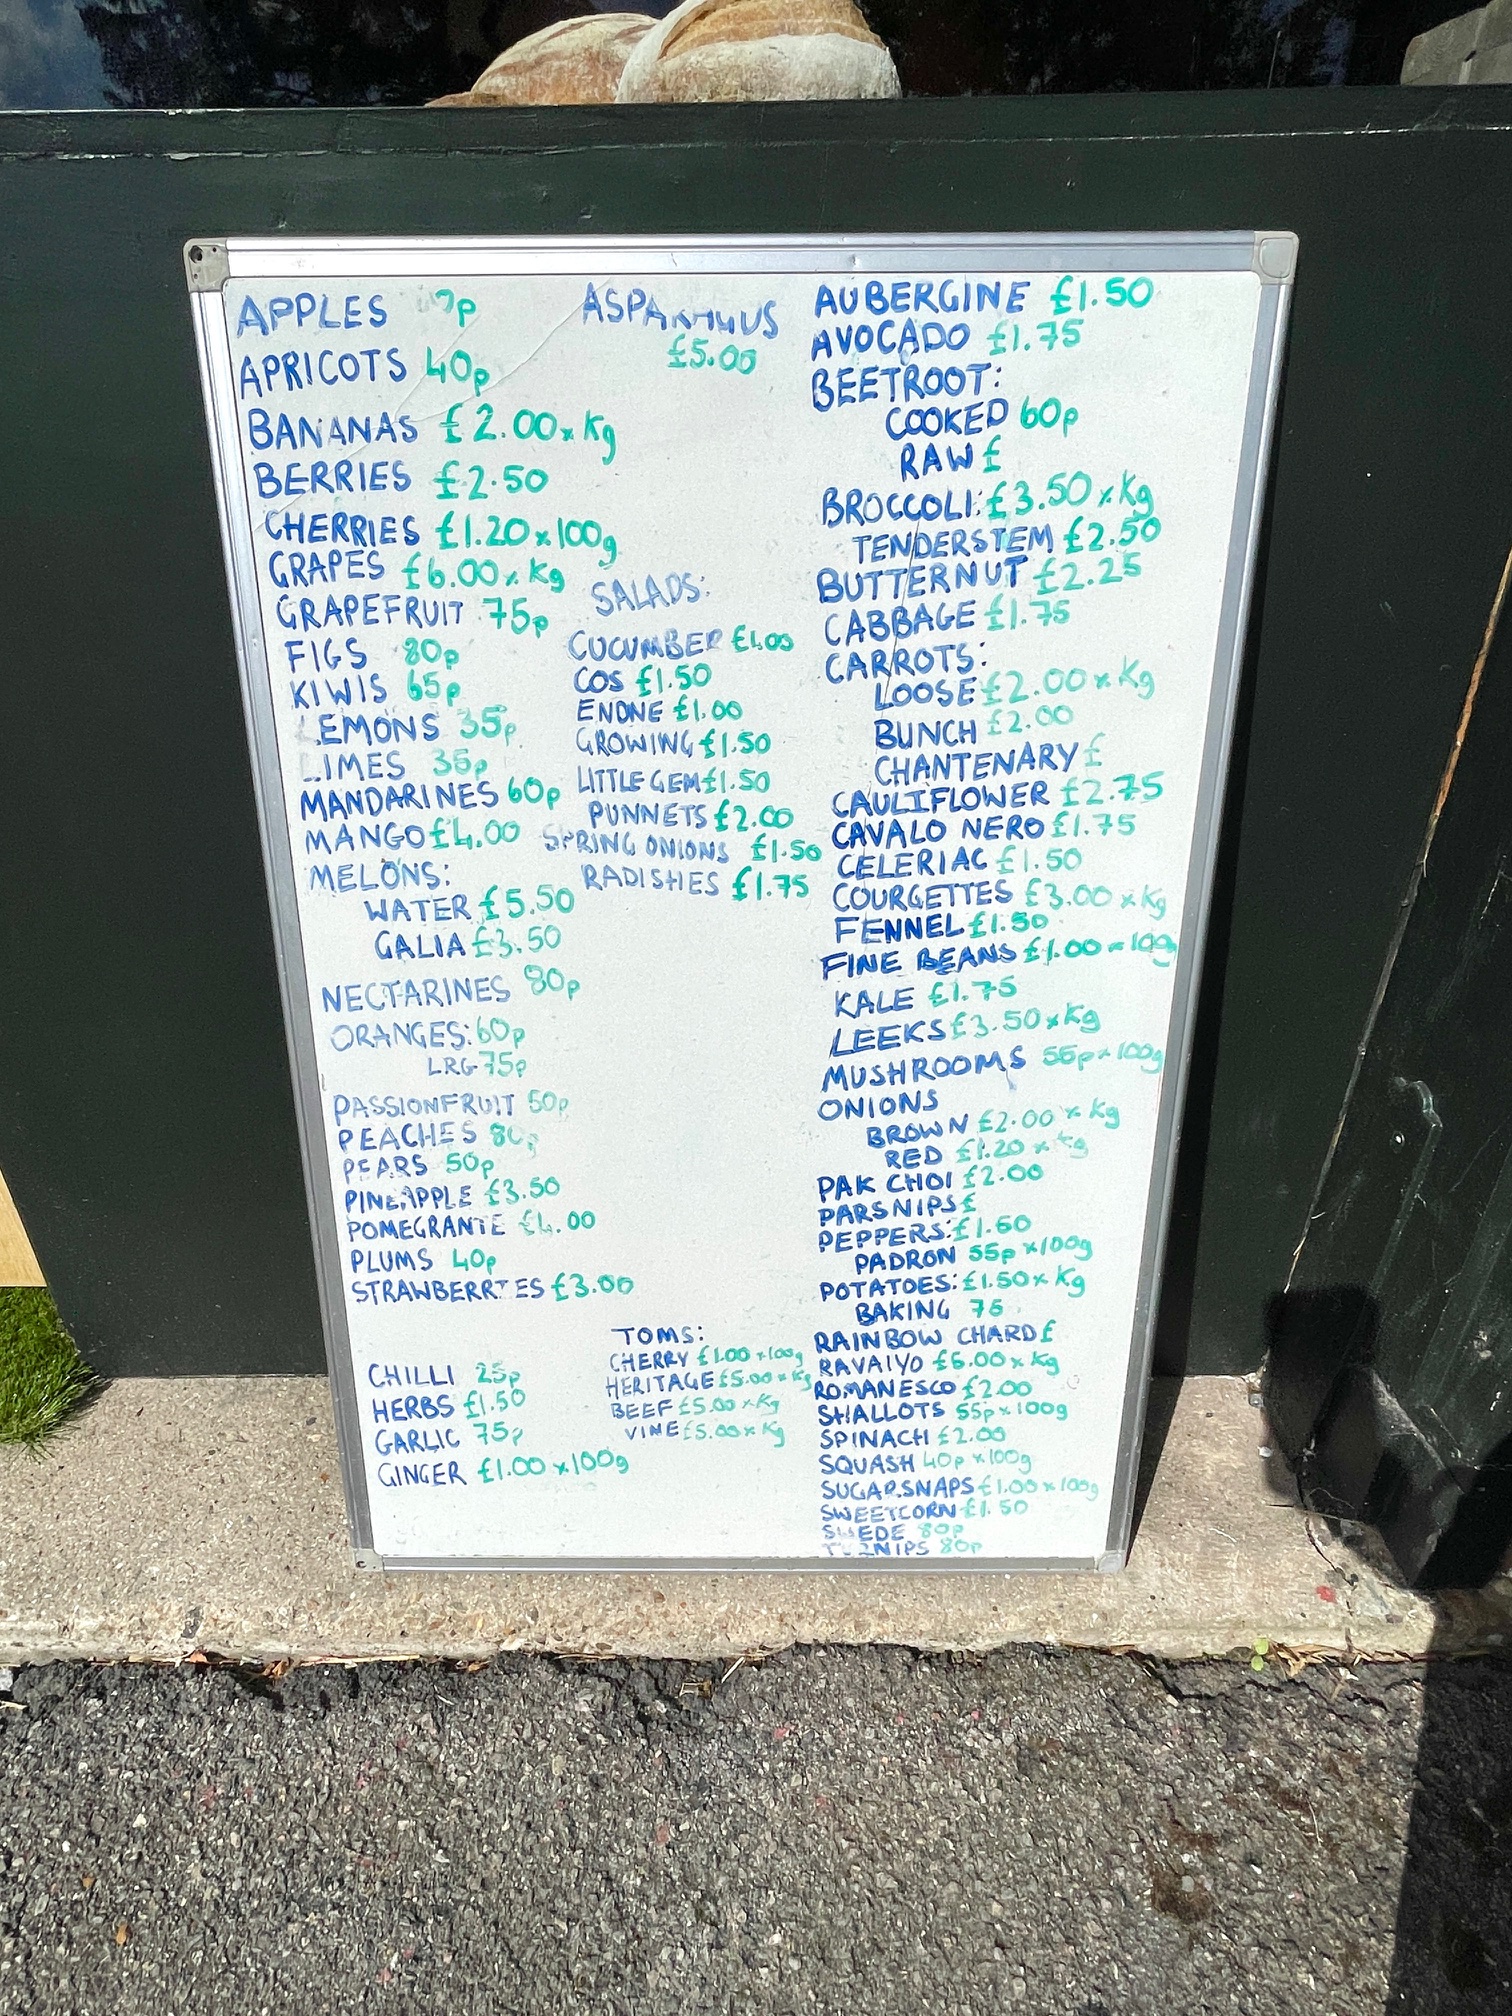 APPLES
APRICOTS 40p
BANANAS £2.00 x Kg
BERRIES £2.50
CHERRIES £1.20 x 100g
GRAPES £6.00 x Kg
GRAPEFRUIT 75p
FIGS 80p
KIWIS 65p
LEMONS 35p
LIMES 35p
MANDARINES 60p
MANGO £4.00
MELONS:
WATER £5.50
GALIA £3.50
NECTARINES 80p
ORANGES: 60p
LRG 75p
PASSIONFRUIT 50p
PEACHES 80p
PEARS 50p
PINEAPPLE £3.50
POMEGRANTE £4.00
PLUMS 40p
STRAWBERRIES £3.00
CHILLI 25p
HERBS £1.50
GARLIC 75p
GINGER £1.00 x 100g
ASPARAGUS
£5.00
SALADS:
CUCUMBER £1.00
COS £1.50
ENDIVE £1.00
GROWING £1.50
LITTLE GEM £1.50
PUNNETS £2.00
SPRING ONIONS £1.50
RADISHES £1.75
TOMS:
CHERRY £1.00 x 100g
HERITAGE £5.00 x Kg
BEEF £5.00 x Kg
VINE £5.00 x Kg
AUBERGINE £1.50
AVOCADO £1.75
BEETROOT:
COOKED 60p
RAW £
BROCCOLI: £3.50 x Kg
TENDERSTEM £2.50
BUTTERNUT £2.25
CABBAGE £1.75
CARROTS:
LOOSE £2.00 x Kg
BUNCH £2.00
CHANTENARY £
CAULIFLOWER £2.75
CAVALO NERO £1.75
CELERIAC £1.50
COURGETTES £3.00 x Kg
FENNEL £1.50
FINE BEANS £1.00 x 100g
KALE £1.75
LEEKS £3.50 x Kg
MUSHROOMS 55p x 100g
ONIONS
BROWN £2.00 x Kg
RED £1.20 x Kg
PAK CHOI £2.00
PARSNIPS £
PEPPERS: £1.60
PADRON 55p x 100g
POTATOES: £1.50 x Kg
BAKING 75
RAINBOW CHARD £
RAVAIYO £6.00 x Kg
ROMANESCO £2.00
SHALLOTS 55p x 100g
SPINACH £2.00
SQUASH 40p x 100g
SUGARSNAPS £1.00 x 100g
SWEETCORN £1.50
SWEDE 80p
TURNIPS 80p